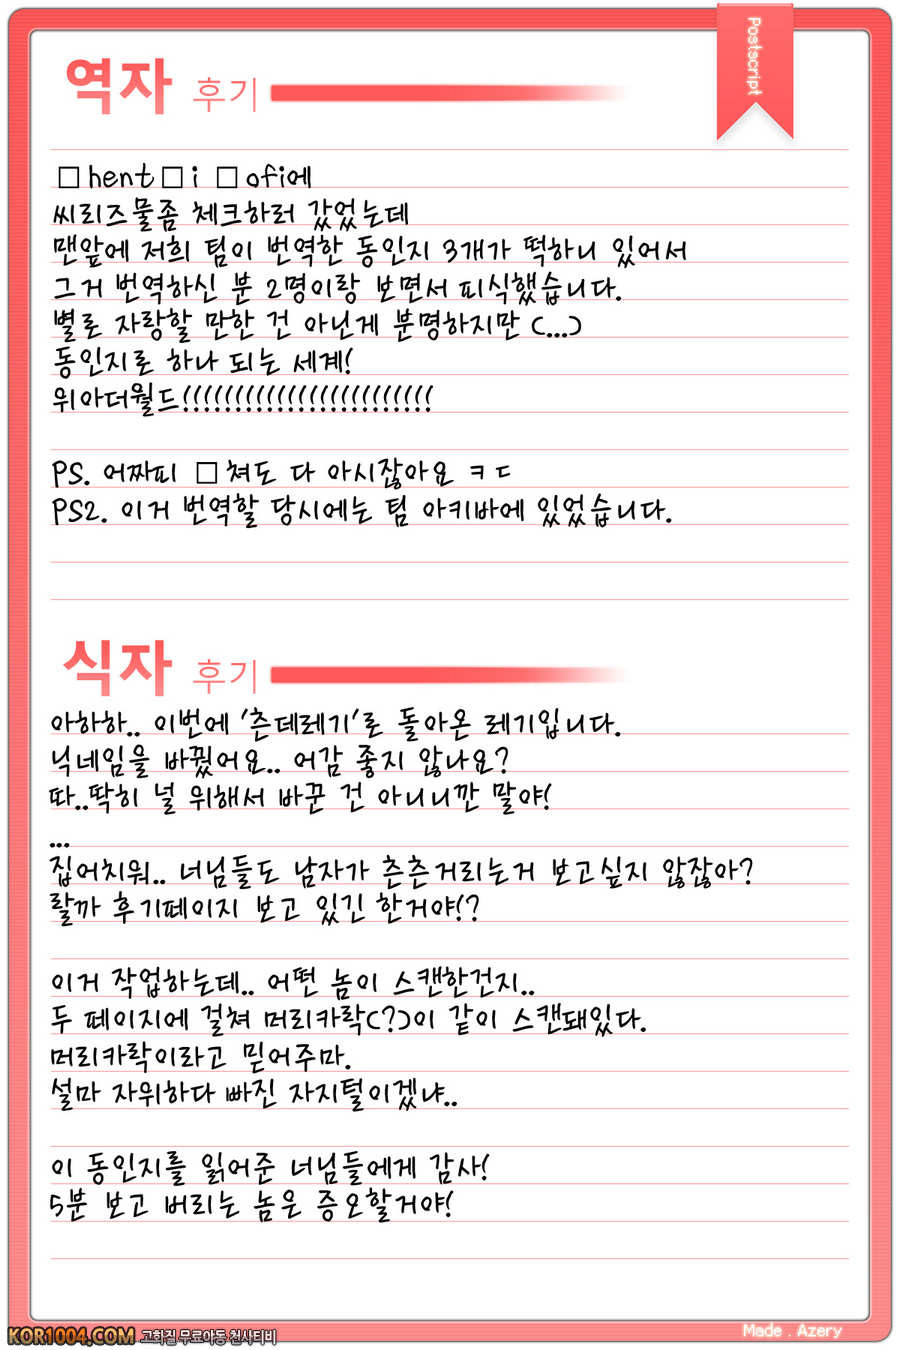 Postscript
역자 후기
□hent□i □ofi에
씨리즈물좀 체크하러 갔었는데
맨앞에 저희 팀이 번역한 동인지 3개가 떡하니 있어서
그거 번역하신 분 2명이랑 보면서 피식했습니다.
별로 자랑할 만한 건 아닌게 분명하지만 (...)
동인지로 하나 되는 세계!
위아더월드!!!!!!!!!!!!!!!!!!!!!!!!
PS. 어짜피 □쳐도 다 아시잖아요 ㅋㄷ
PS2. 이거 번역할 당시에는 팀 아키바에 있었습니다.
식자 후기
아하하.. 이번에 '츤데레기'로 돌아온 레기입니다.
닉네임을 바꿨어요.. 어감 좋지 않나요?
따..딱히 널 위해서 바꾼 건 아니니깐 말야!
...
집어치워.. 너님들도 남자가 츤츤거리는거 보고싶지 않잖아?
랄까 후기페이지 보고 있긴 한거야!?
이거 작업하는데.. 어떤 놈이 스캔한건지..
두 페이지에 걸쳐 머리카락(?)이 같이 스캔돼있다.
머리카락이라고 믿어주마.
설마 자위하다 빠진 자지털이겠냐..
이 동인지를 읽어준 너님들에게 감사!
5분 보고 버리는 놈은 증오할거야!
KOR1004.COM 고화질 무료야동 천사티비
Made . Azery